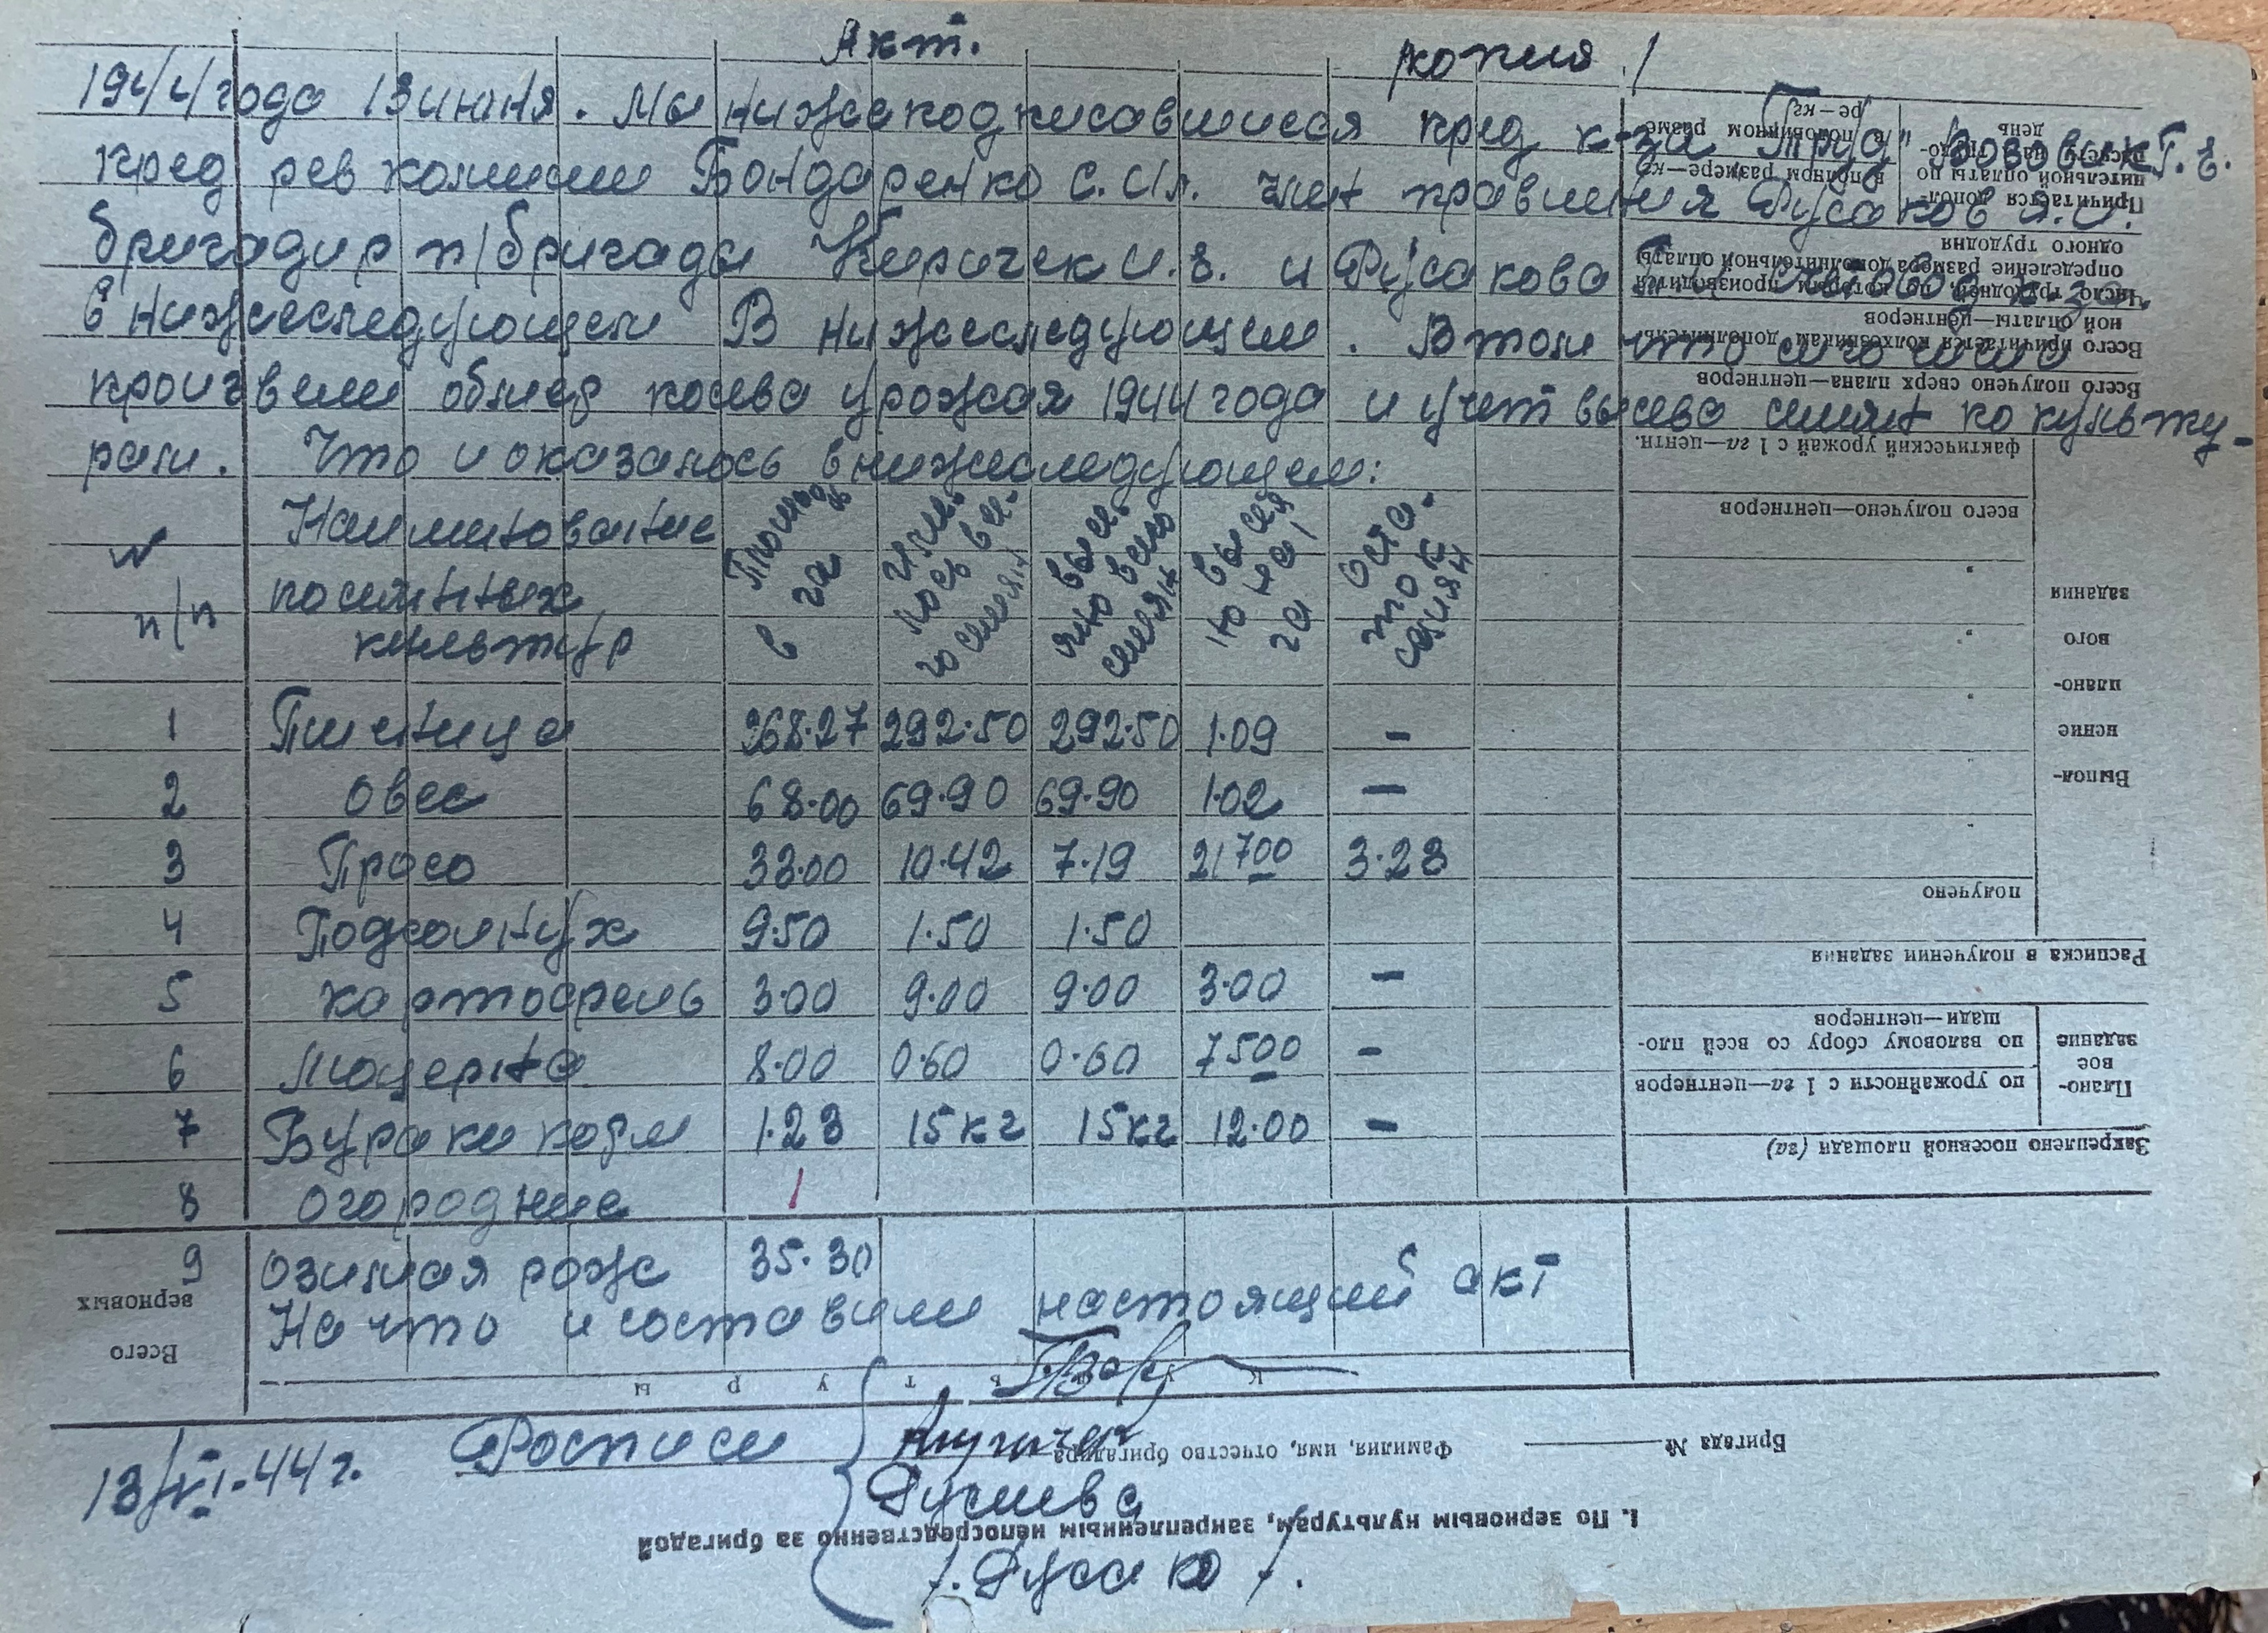 Акт. копия /
1944 года 13 июня. Мы нижеподписавшиеся пред к-за "Труд"
пред рев комиссии Бондаренко С. Ил. член правления Русаков Я. И.
бригадир п/бригады Киричек И. Г. и Русакова
в нижеследующем В нижеследующем. В том что сего числа
произвели обмер посева урожая 1944 года и учет высева семян по культу-
рам. Что и оказалось в нижеследующем:
№ п/п
Наименование посевных культур
Площадь в га
Имелось всего семян
Высеяно всего семян
Высеяно на 1 га
Остаток семян
1 Пшеница 268.27 292.50 292.50 1.09 -
2 Овес 68.00 69.90 69.90 1.02 -
3 Просо 33.00 10.42 7.19 21 700 3.23
4 Подсолнух 9.50 1.50 1.50
5 картофель 3.00 9.00 9.00 3.00 -
6 Люцерна 8.00 0.60 0.60 7500 -
7 Бураки корм 1.23 15 кг 15 кг 12.00 -
8 огородние
9 озимая рож 35.30
На что и составили настоящий акт
13/VI.44 г. Росписи
Бригада №
Фамилия, имя, отчество бригадира
I. По зерновым культурам, закрепленным непосредственно за бригадой
К у л ь т у р ы
Всего зерновых
Закреплено посевной площади (га)
Плановое задание
по урожайности с 1 га—центнеров
по валовому сбору со всей площади—центнеров
Расписка в получении задания
Выполнение планового задания
получено
всего получено—центнеров
фактический урожай с 1 га—центн.
Всего получено сверх плана—центнеров
Всего причитается колхозникам дополнительной оплаты—центнеров
Число трудодней, по которым производится определение размера дополнительной оплаты одного трудодня
Причитается дополнительной оплаты по
в полном размере—кг
в половинном размере—кг